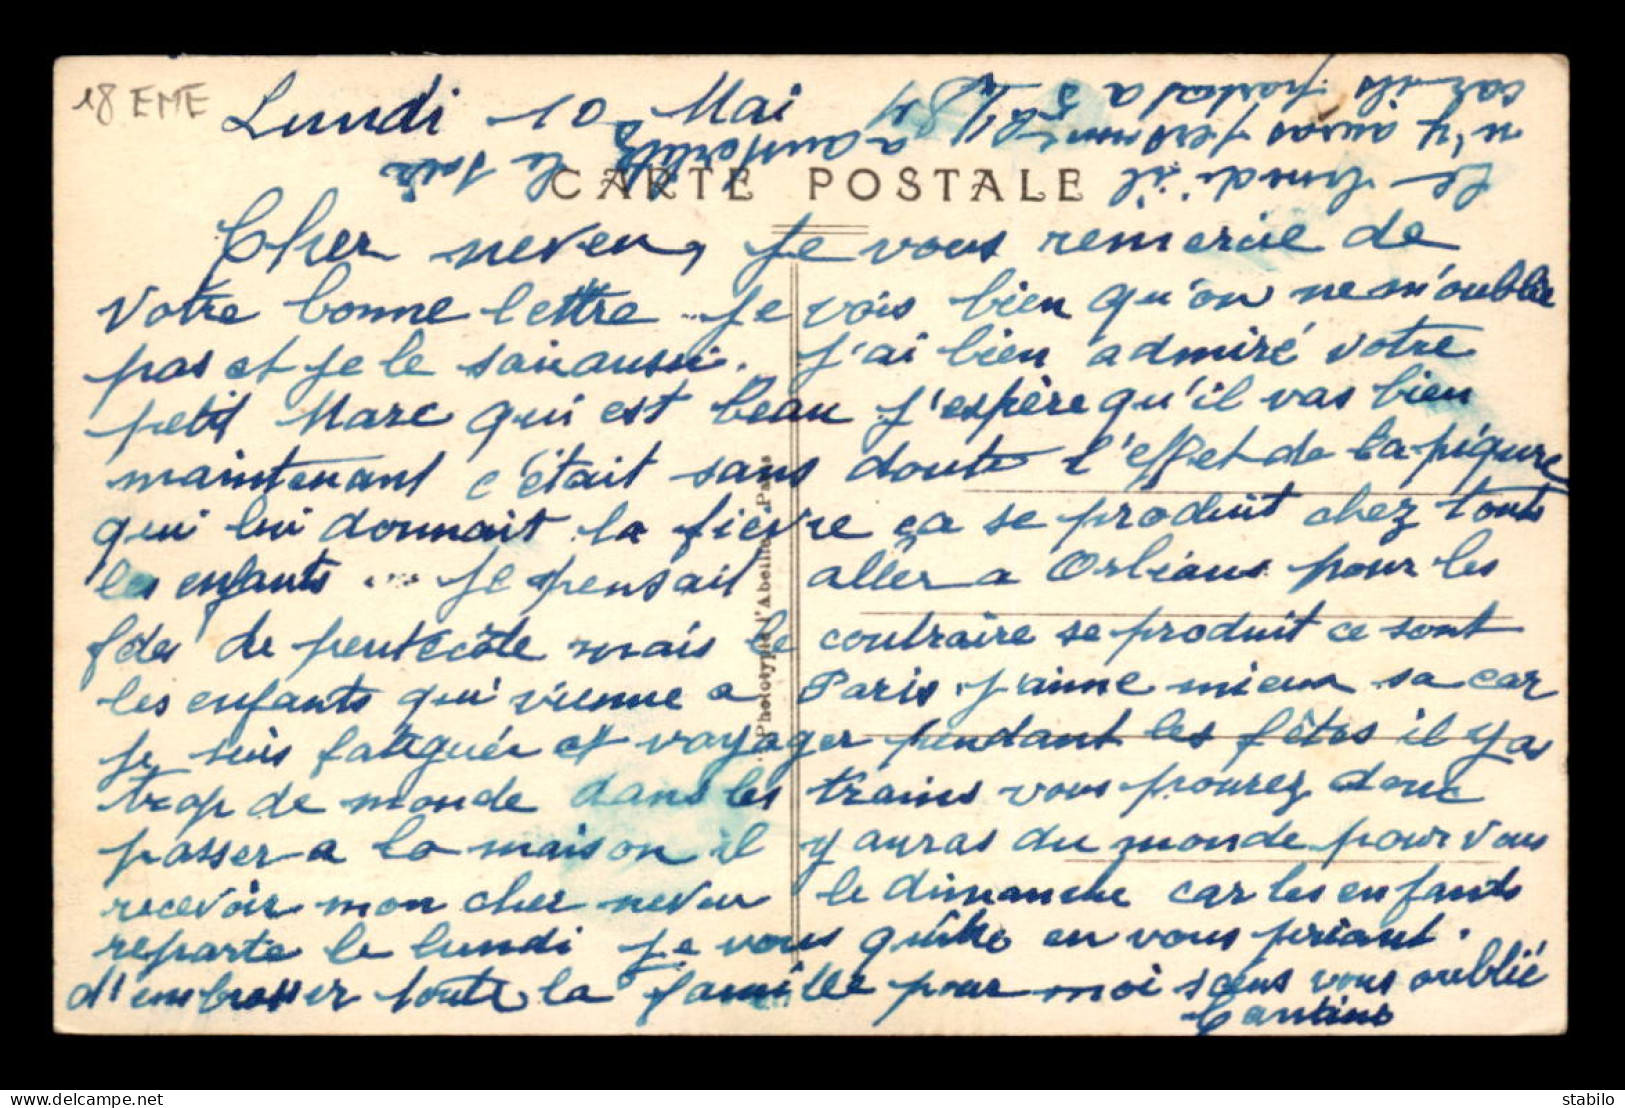 18 EME
Lundi 10 Mai
CARTE POSTALE
Cher neveu, je vous remercie de
votre bonne lettre je vois bien qu'on ne m'oublie
pas et je le sais aussi. j'ai bien admiré votre
petit Marc qui est beau j'espère qu'il vas bien
maintenant c'était sans doute l'effet de la piqure
qui lui donnait la fièvre ça se produit chez tout
les enfants ... je pensait aller a Orléans pour les
fêtes de pentecôte mais le contraire se produit ce sont
les enfants qui vienne a Paris j'aime mieux sa car
je suis fatiguée et voyager pendant les fêtes il y as
trop de monde dans les trains vous pourez donc
passer a la maison il y auras du monde pour vous
recevoir mon cher neveu le dimanche car les enfants
reparte le lundi je vous quitte en vous priant
d'embrasser toute la famille pour moi sans vous oublié
le lundi il
n'y auras personne
car ils partes a 5h
a austerlitz
le soir
Phototypie l'Abeille, Paris
stabilo